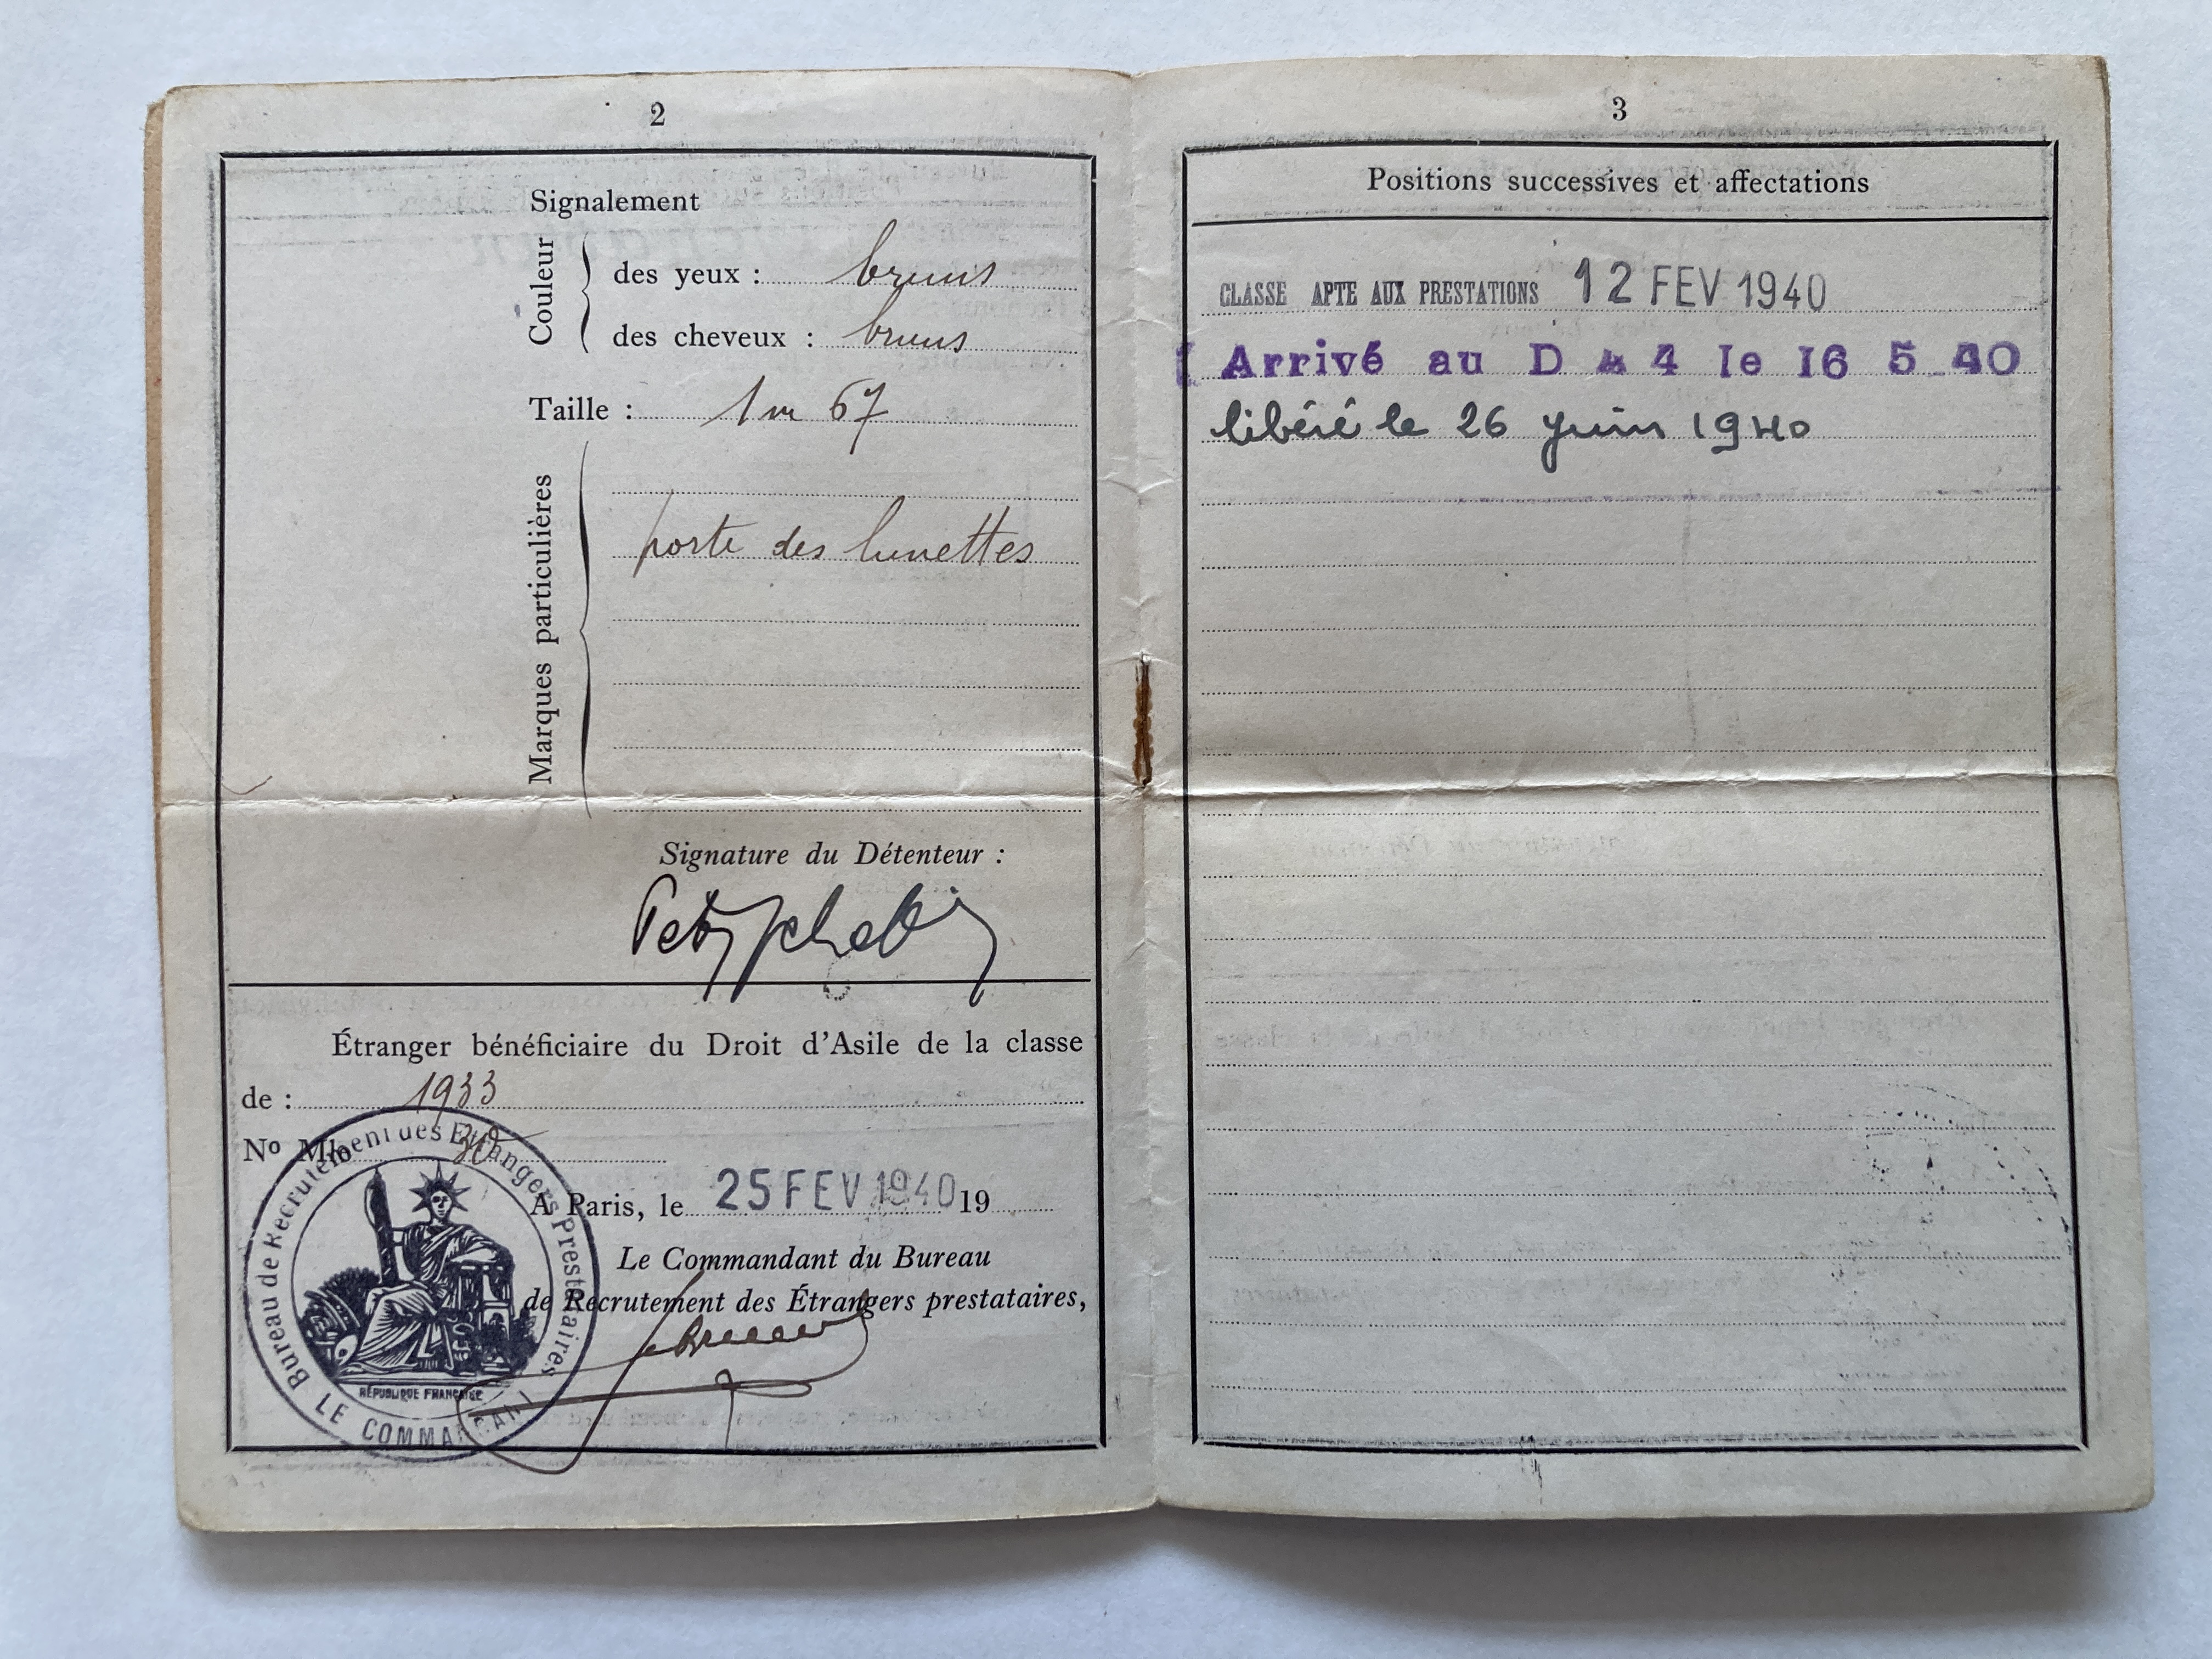 2
Signalement
Couleur
des yeux : bruns
des cheveux : bruns
Taille : 1 m 67
Marques particulières
porte des lunettes
Signature du Détenteur :
Étranger bénéficiaire du Droit d'Asile de la classe
de : 1933
No Mle
A Paris, le 25 FEV 1940 19
Le Commandant du Bureau
de Recrutement des Étrangers prestataires,
Bureau de Recrutement des Etrangers Prestataires
RÉPUBLIQUE FRANÇAISE
LE COMMANDANT
3
Positions successives et affectations
CLASSE APTE AUX PRESTATIONS 12 FEV 1940
Arrivé au D 4 le 16 5 40
libéré le 26 juin 1940